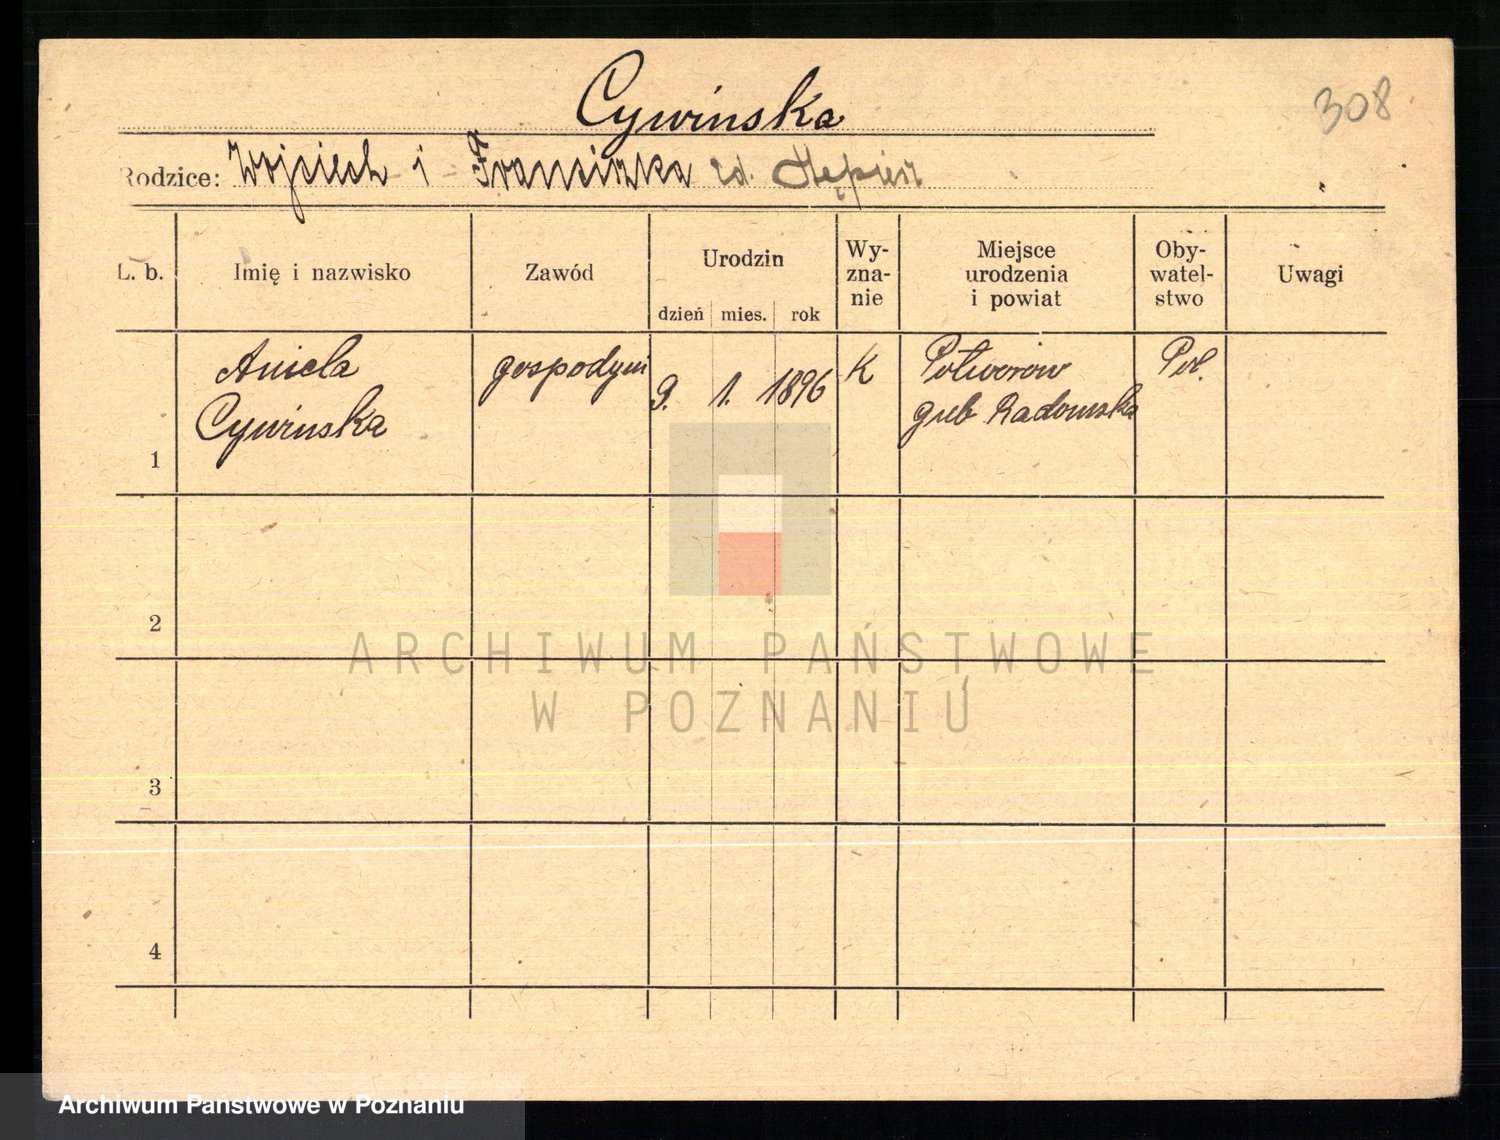 Cywinska
308
Rodzice: Wojciech i Franciszka zd.
L. b.
Imię i nazwisko
Zawód
Urodzin
dzień mies. rok
Wy-
zna-
nie
Miejsce
urodzenia
i powiat
Oby-
watel-
stwo
Uwagi
1
Aniela
Cywinska
gospodyni
9. 1. 1896
K
Potworów
gub Radomska
Pol.
2
3
4
ARCHIWUM PAŃSTWOWE
W POZNANIU
Archiwum Państwowe w Poznaniu